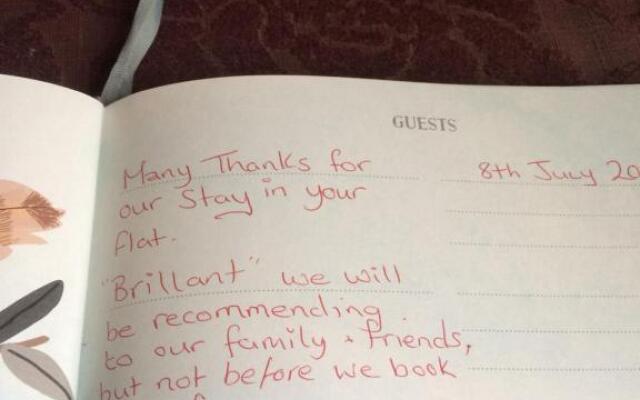 GUESTS
Many Thanks for
8th July 20
our Stay in your
flat.
"Brillant" we will
be recommending
to our family + friends,
but not before we book